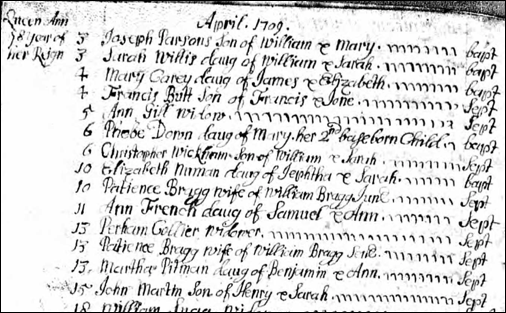 Queen Ann April. 1709.
ye 8 year of 3 Joseph Parsons son of William & Mary bapt
her Reign 3 Sarah Willis daug of William & Sarah bapt
4 Mary Carey daug of James & Elizabeth bapt
4 Francis Butt son of Francis & Jone Sept
5 Ann Gill widow Sept
6 Phebe Doron daug of Mary her 2nd baseborn Child bapt
6 Christopher Wickham son of William & Sarah Sept
10 Elizabeth daug of Jephtha & Sarah bapt
10 Patience Bragg wife of William Bragg Junr. Sept
11 Ann French daug of Samuel & Ann Sept
13 Perham Collier widower Sept
13 Patience Bragg wife of William Bragg Senr. Sept
13 Martha Pitman daug of Benjamin & Ann Sept
15 John Martin son of Henry & Sarah Sept
18 William